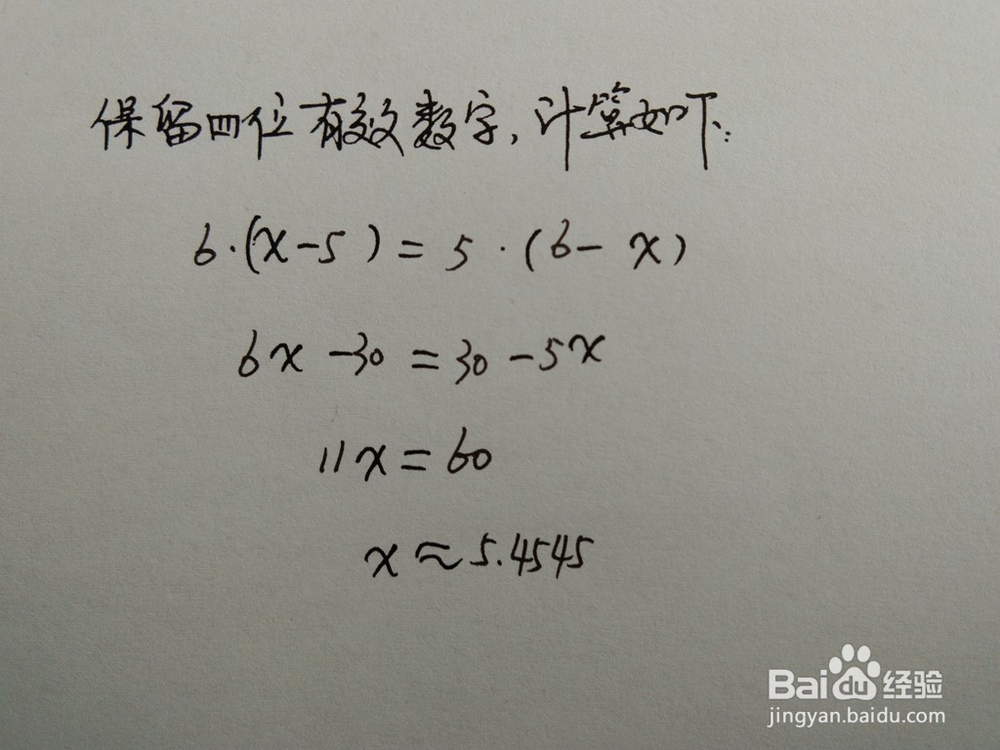 保留四位有效数字,计算如下:
6·(x-5)=5·(6-x)
6x-30=30-5x
11x=60
x≈5.4545
Baidu经验
jingyan.baidu.com